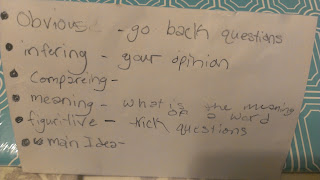 Obvious - go back questions
infering - your opinion
Compareing -
meaning - what is the meaning
of a word
figuritive - trick questions
main Idea -